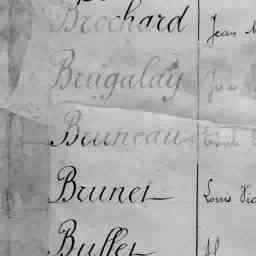 Brochard Jean
Brugalay Jean
Bruneau
Brunet Louis
Buffet